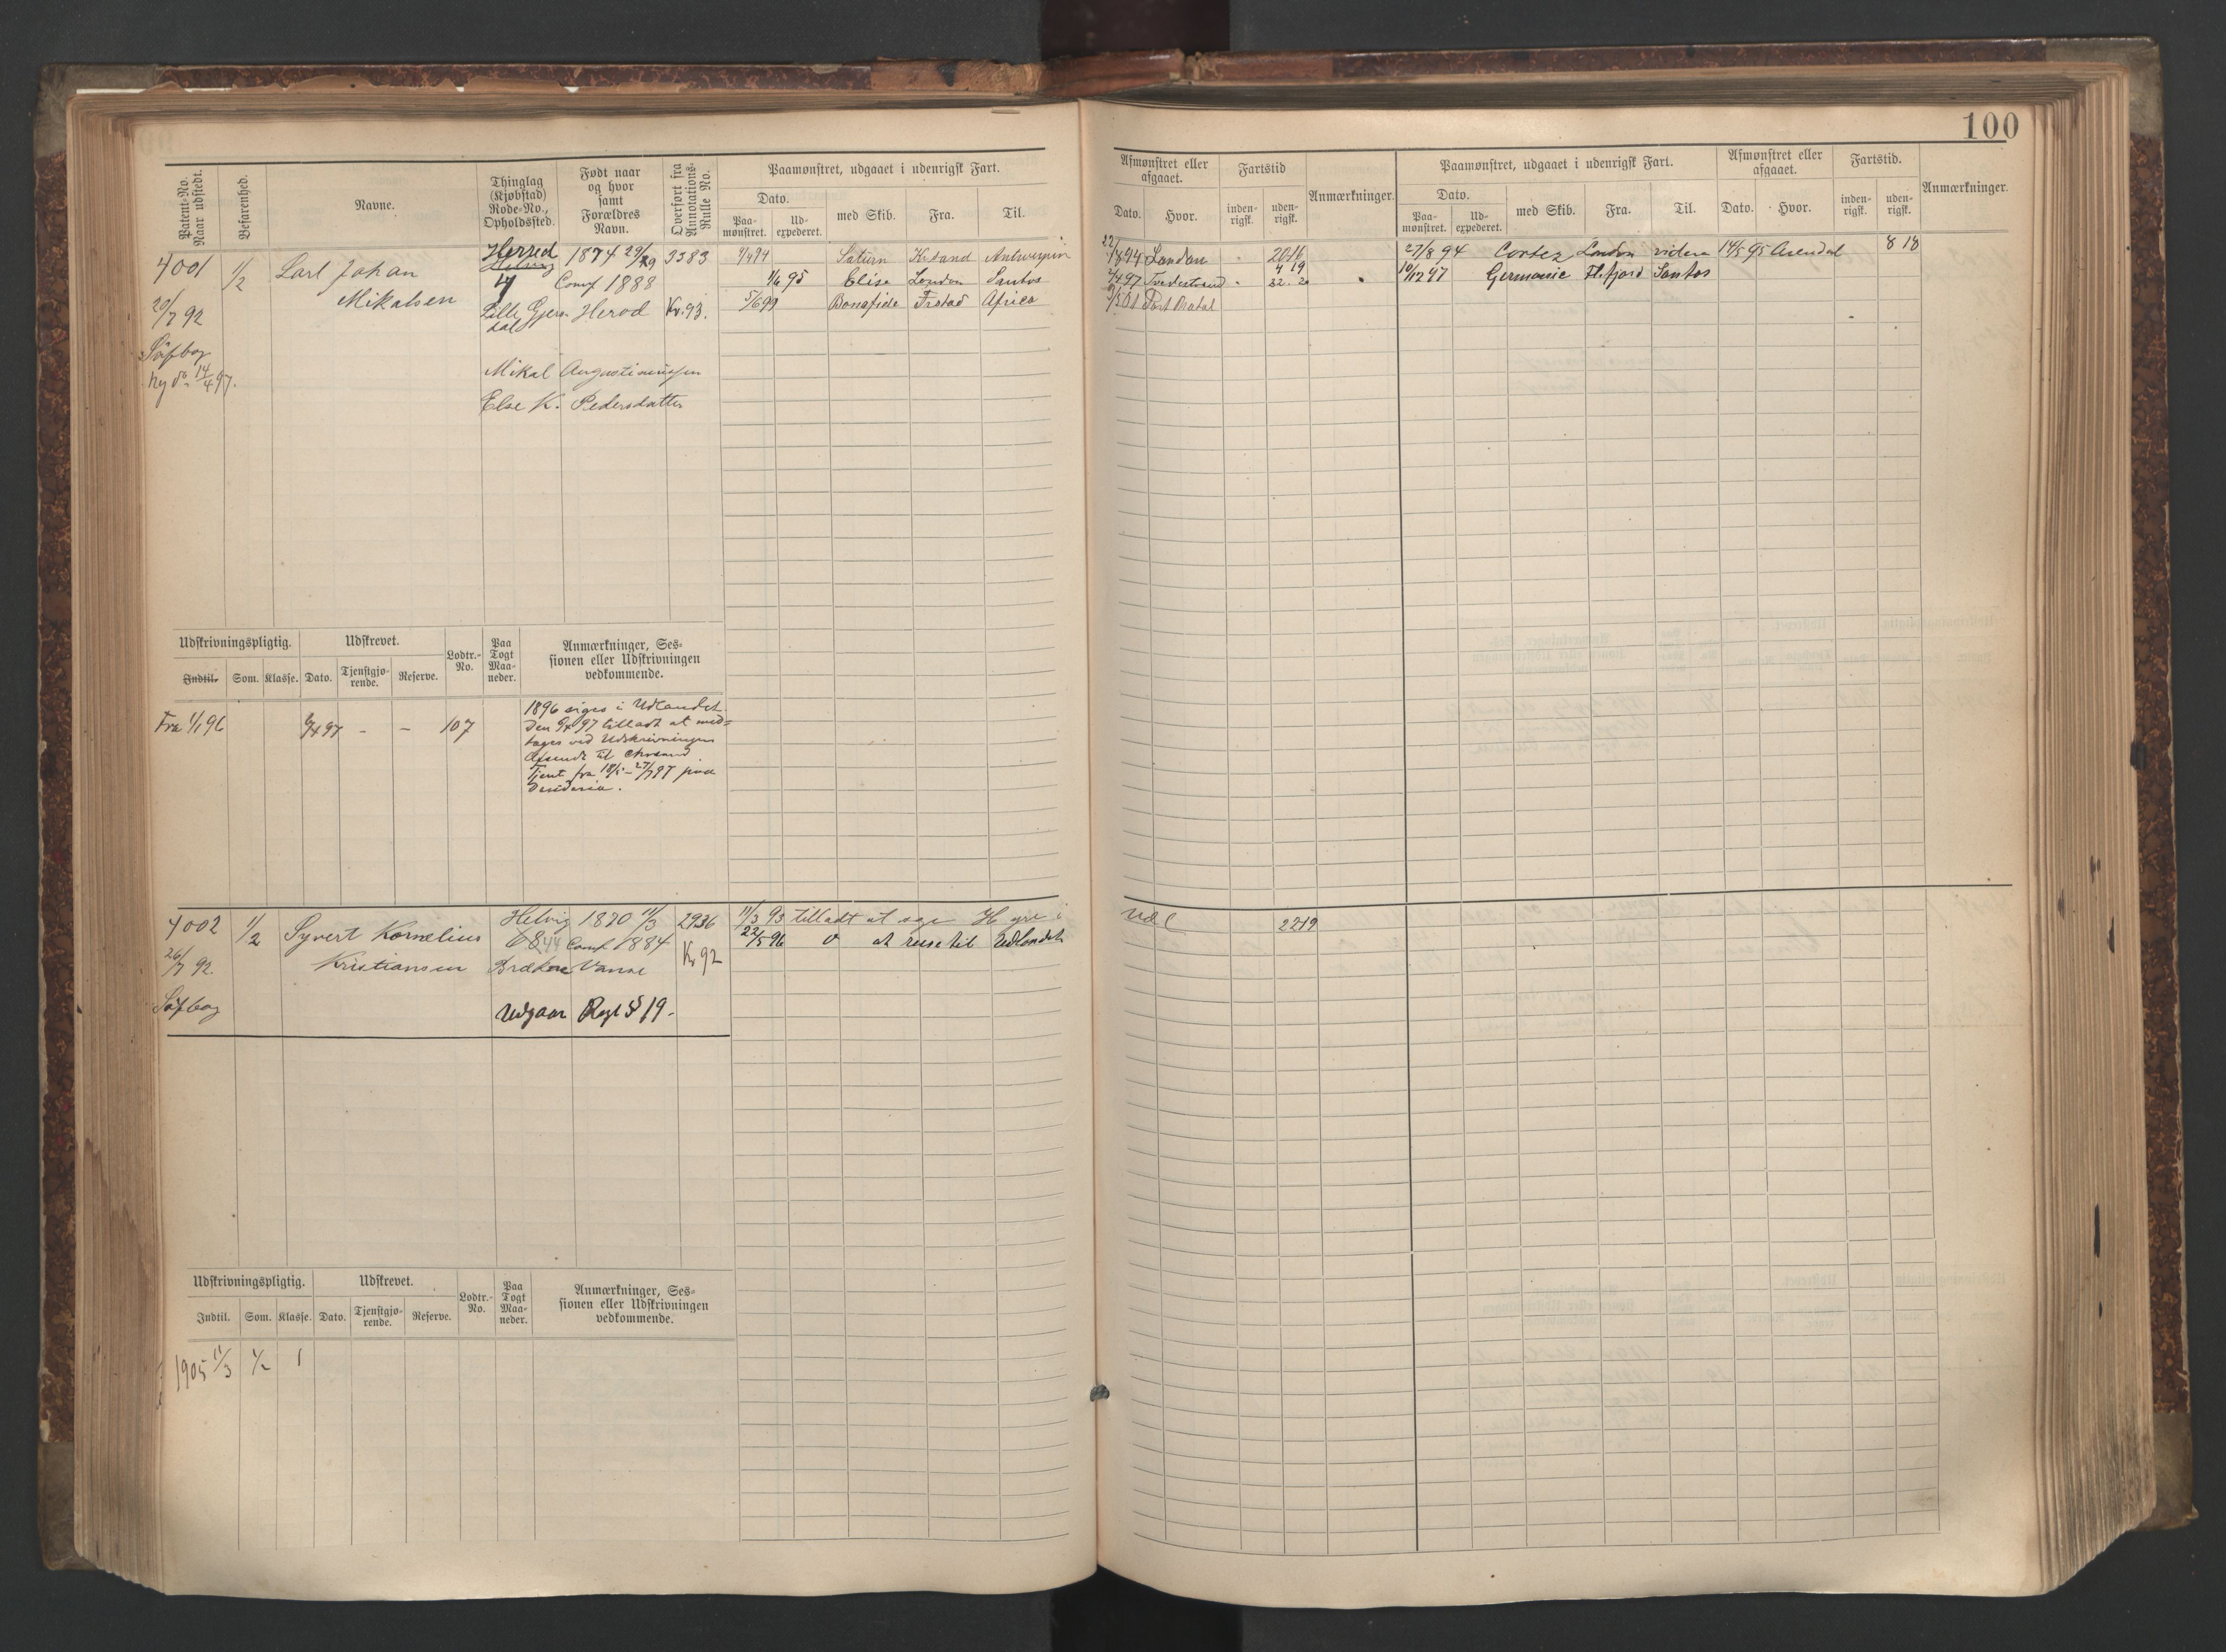 100
Patent-No. Naar udstedt.
Befarenhed.
Navne.
Thinglag (Kjøbstad) Rode-No., Opholdssted.
Født naar og hvor samt Forældres Navn.
Overført fra Annotations-Rulle No.
Paamønstret, udgaaet i udenrigsk Fart.
Dato.
Paa-mønstret.
Ud-expederet.
med Skib.
Fra.
Til.
4001
1/2
Carl Johan
Mikalsen
20/7 92
Søfbog
Ny do 14/4 97.
Herred
Helvig
4
Lille Gjers-
dal
1874 29/9
Conf 1888
Herod
3383
Kr. 93.
Mikal Augustinussen
Else K. Pedersdatter
Saturn Krsand Antwerpen
1/6 95 Elise London Santos
5/6 99 Bonafide Frstad Africa
Udskrivningspligtig.
Udskrevet.
Lodtr.-No.
Paa Togt Maa-neder.
Anmærkninger, Ses-
sionen eller Udskrivningen
vedkommende.
Indtil.
Som.
Klasse.
Dato.
Tjenstgjø-rende.
Reserve.
Fra 1/1 96
9/4 97 - - 107
1896 siges i Udlandet.
Den 9/4 97 tilladt at med-
tages ved Udskrivningen
Afsendt til Chrsand
Tjent fra 18/5 - 27/7 97 paa
Desideria.
4002
1/2
Syvert Kornelius
Kristiansen
26/7 92.
Søfbog
Helvig 1870 11/3
68 44 Conf 1884
Brækne Vanse
2936
Kr 92
Udgaar Regl § 19.
11/3 93 tilladt at søge Hyre i
22/5 96 do at reise til Udlandet
Udskrivningspligtig.
Udskrevet.
Lodtr.-No.
Paa Togt Maa-neder.
Anmærkninger, Ses-
sionen eller Udskrivningen
vedkommende.
Indtil.
Som.
Klasse.
Dato.
Tjenstgjø-rende.
Reserve.
1905 11/3 1/2 1
Afmønstret eller afgaaet.
Fartstid
Anmærkninger.
Paamønstret, udgaaet i udenrigsk Fart.
Afmønstret eller afgaaet.
Fartstid.
Anmærkninger.
Dato.
Hvor.
inden-rigsk.
uden-rigsk.
Dato.
Paa-mønstret.
Ud-expederet.
med Skib.
Fra.
Til.
Dato.
Hvor.
inden-rigsk.
uden-rigsk.
22/8 94 London 2016
27/8 94 Cortez London videre 14/5 95 Arendal 8 18
2/4 97 Tvedestrand 4 19
10/12 97 Germanic Flkfjord Santos
Port Natal
Udl 2219